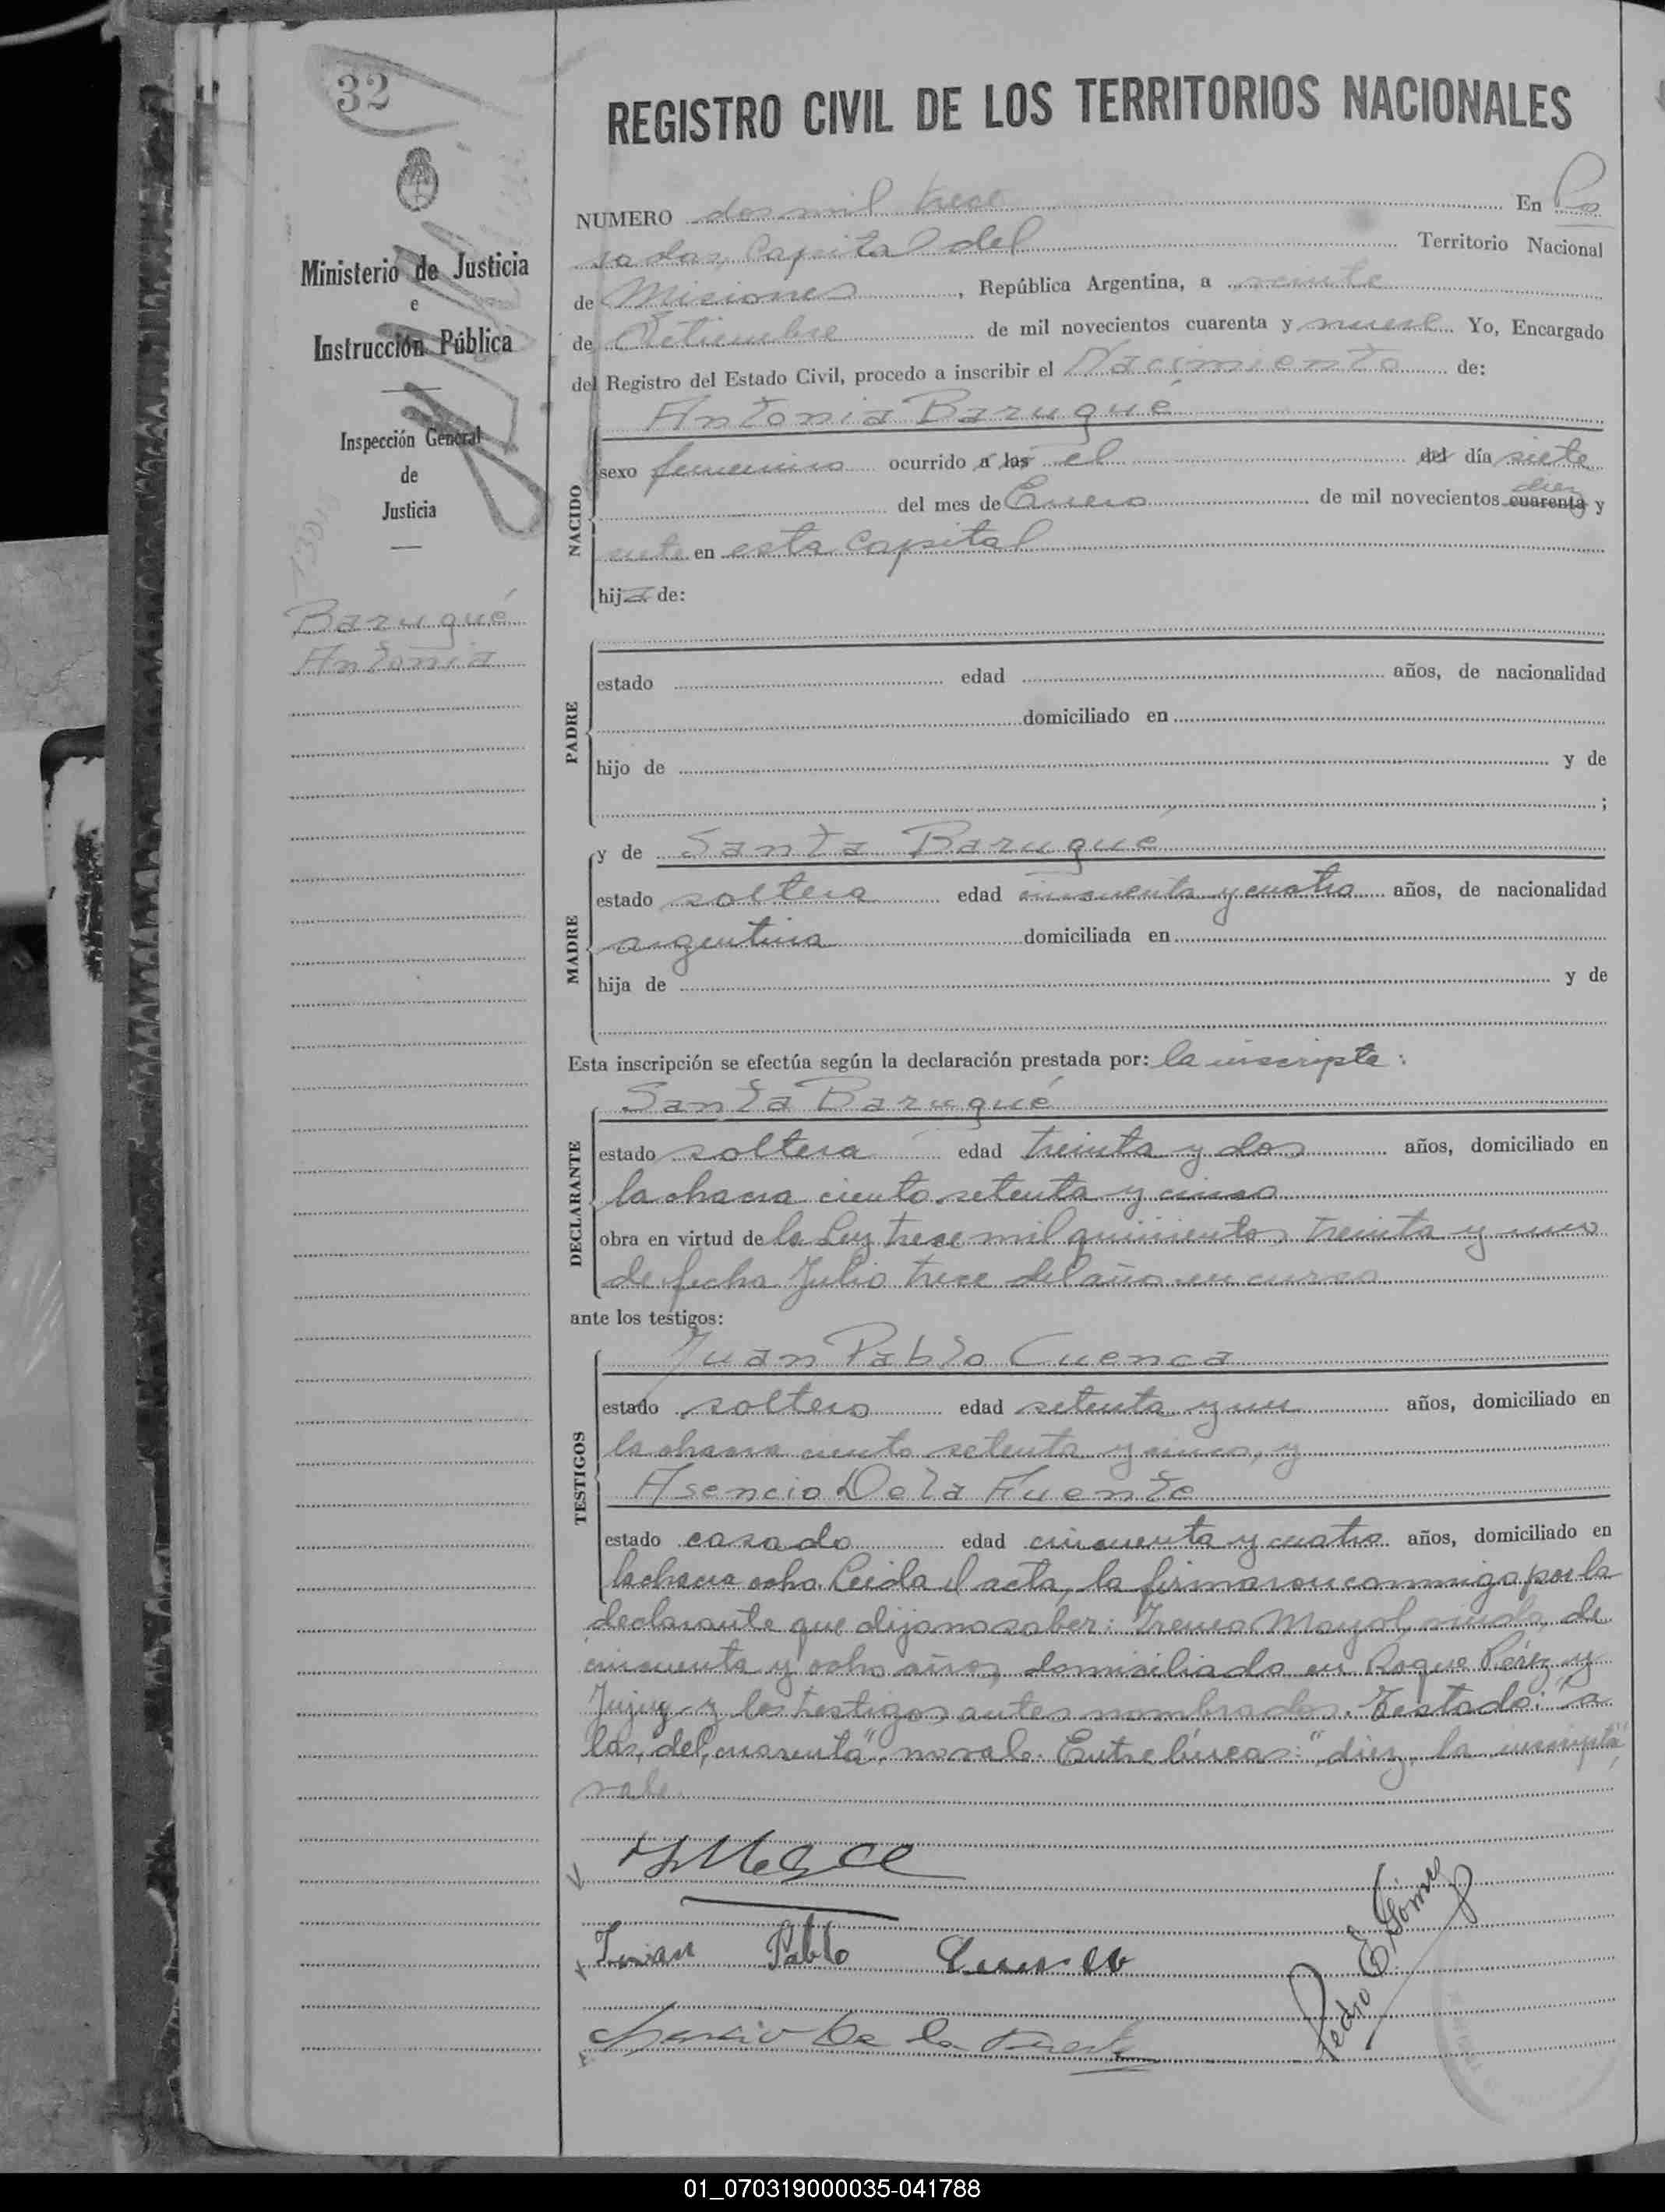 32
REGISTRO CIVIL DE LOS TERRITORIOS NACIONALES
Ministerio de Justicia
e
Instrucción Pública
Inspección General
de
Justicia
Baruqué
Antonia
NUMERO dos mil trece En Po
sadas, Capital del Territorio Nacional
de Misiones, República Argentina, a veinte
de Setiembre de mil novecientos cuarenta y nueve Yo, Encargado
del Registro del Estado Civil, procedo a inscribir el Nacimiento de:
Antonia Baruqué
NACIDO
sexo femenino ocurrido a las el del día siete
diez
del mes de Enero de mil novecientos cuarenta y
siete en esta Capital
hija de:
PADRE
estado edad años, de nacionalidad
domiciliado en
hijo de y de
;
MADRE
y de Santa Baruqué
estado soltera edad cincuenta y cuatro años, de nacionalidad
argentina domiciliada en
hija de y de
Esta inscripción se efectúa según la declaración prestada por: la inscripta:
DECLARANTE
Santa Baruqué
estado soltera edad treinta y dos años, domiciliado en
la chacra ciento setenta y cinco
obra en virtud de la Ley trece mil quinientos treinta y uno
de fecha Julio trece del año en curso
ante los testigos:
TESTIGOS
Juan Pablo Cuenca
estado soltero edad setenta y un años, domiciliado en
la chacra ciento setenta y cinco, y
Asencio De la Fuente
estado casado edad cincuenta y cuatro años, domiciliado en
la chacra ocho. Leida el acta, la firmaron conmigo por la
declarante que dijo no saber: Ireneo Mayol, viudo, de
cincuenta y ocho años, domiciliado en Roque Pérez y
Jujuy y los testigos antes nombrados. Testado: "a
las, del, cuarenta", no vale. Entre líneas: "diez, la inscripta",
vale.
Juan Pablo Cuenca
Asencio De la Fuente
Pedro E. Gómez
01_070319000035-041788